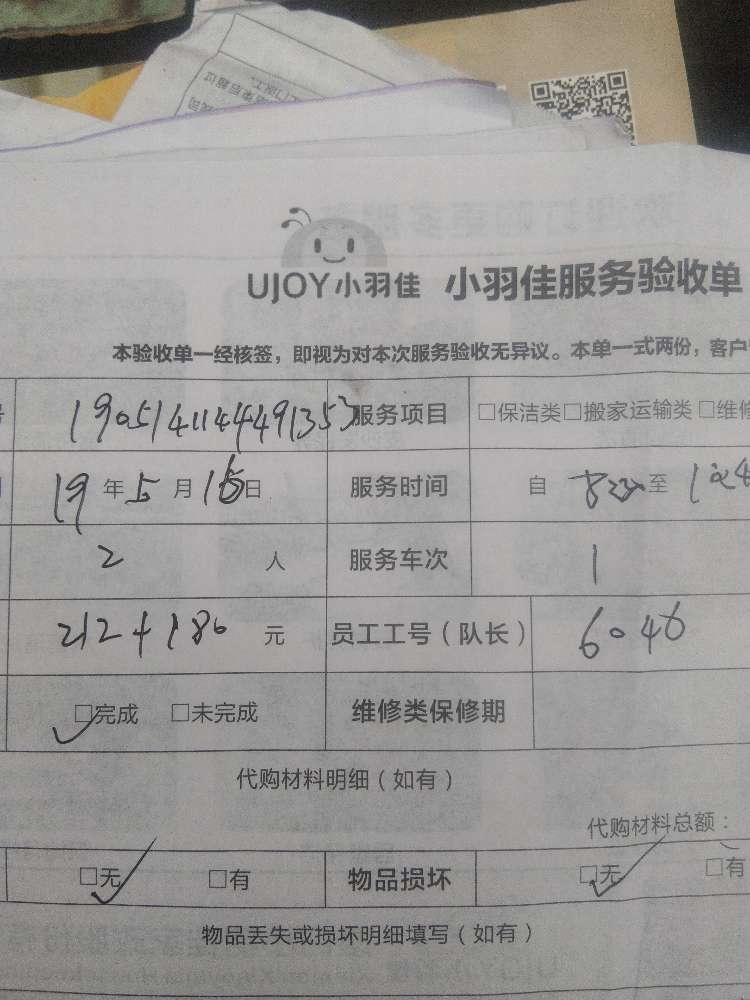 UJOY小羽佳 小羽佳服务验收单
本验收单一经核签，即视为对本次服务验收无异议。本单一式两份，客户
1905141144491353 服务项目 □保洁类□搬家运输类□维修
19年5月15日 服务时间 自 至
2 人 服务车次 1
212+180 元 员工工号（队长） 6046
□完成 □未完成 维修类保修期
代购材料明细（如有）
代购材料总额：
□无 □有 物品损坏 □无 □有
物品丢失或损坏明细填写（如有）